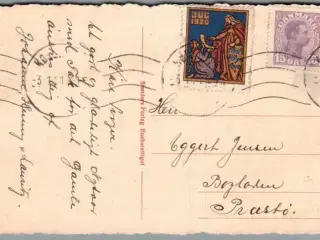 Kære Jørgen.
Et godt og glædeligt Nytaar
med Tak for det Gamle
ønskes Dig af
Johanne, Henny & Lauritz.
Stenders Forlag Eneberettiget
JUL
1920
DANMARK
15 ØRE
Herr
Eggert Jensen
Bogladen
Præstø.